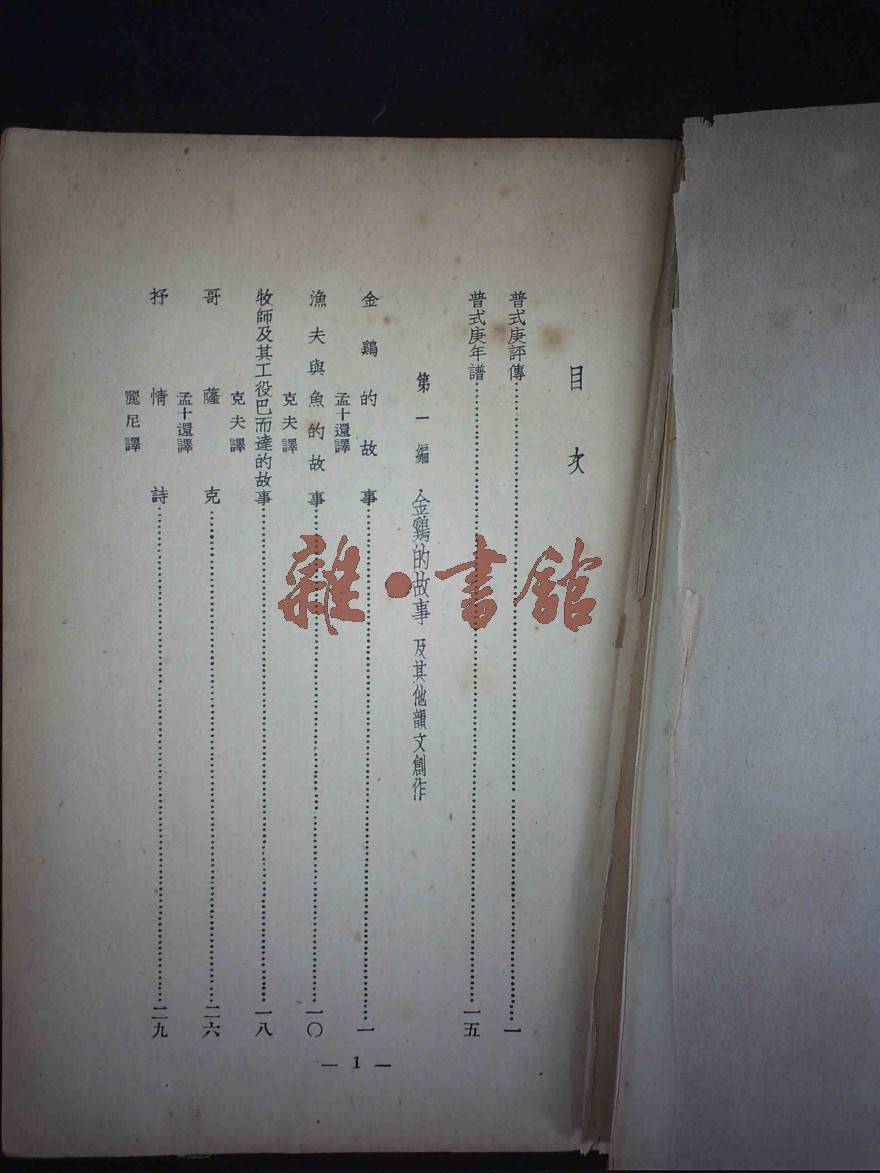 目次
普式庚評傳……一
普式庚年譜……一五
第一編 金鷄的故事 及其他韻文創作
金鷄的故事……一
孟十還譯
漁夫與魚的故事……一〇
克夫譯
牧師及其工役巴而達的故事……一八
克夫譯
哥薩克……二六
孟十還譯
抒情詩……二九
麗尼譯
— 1 —
雜·書館